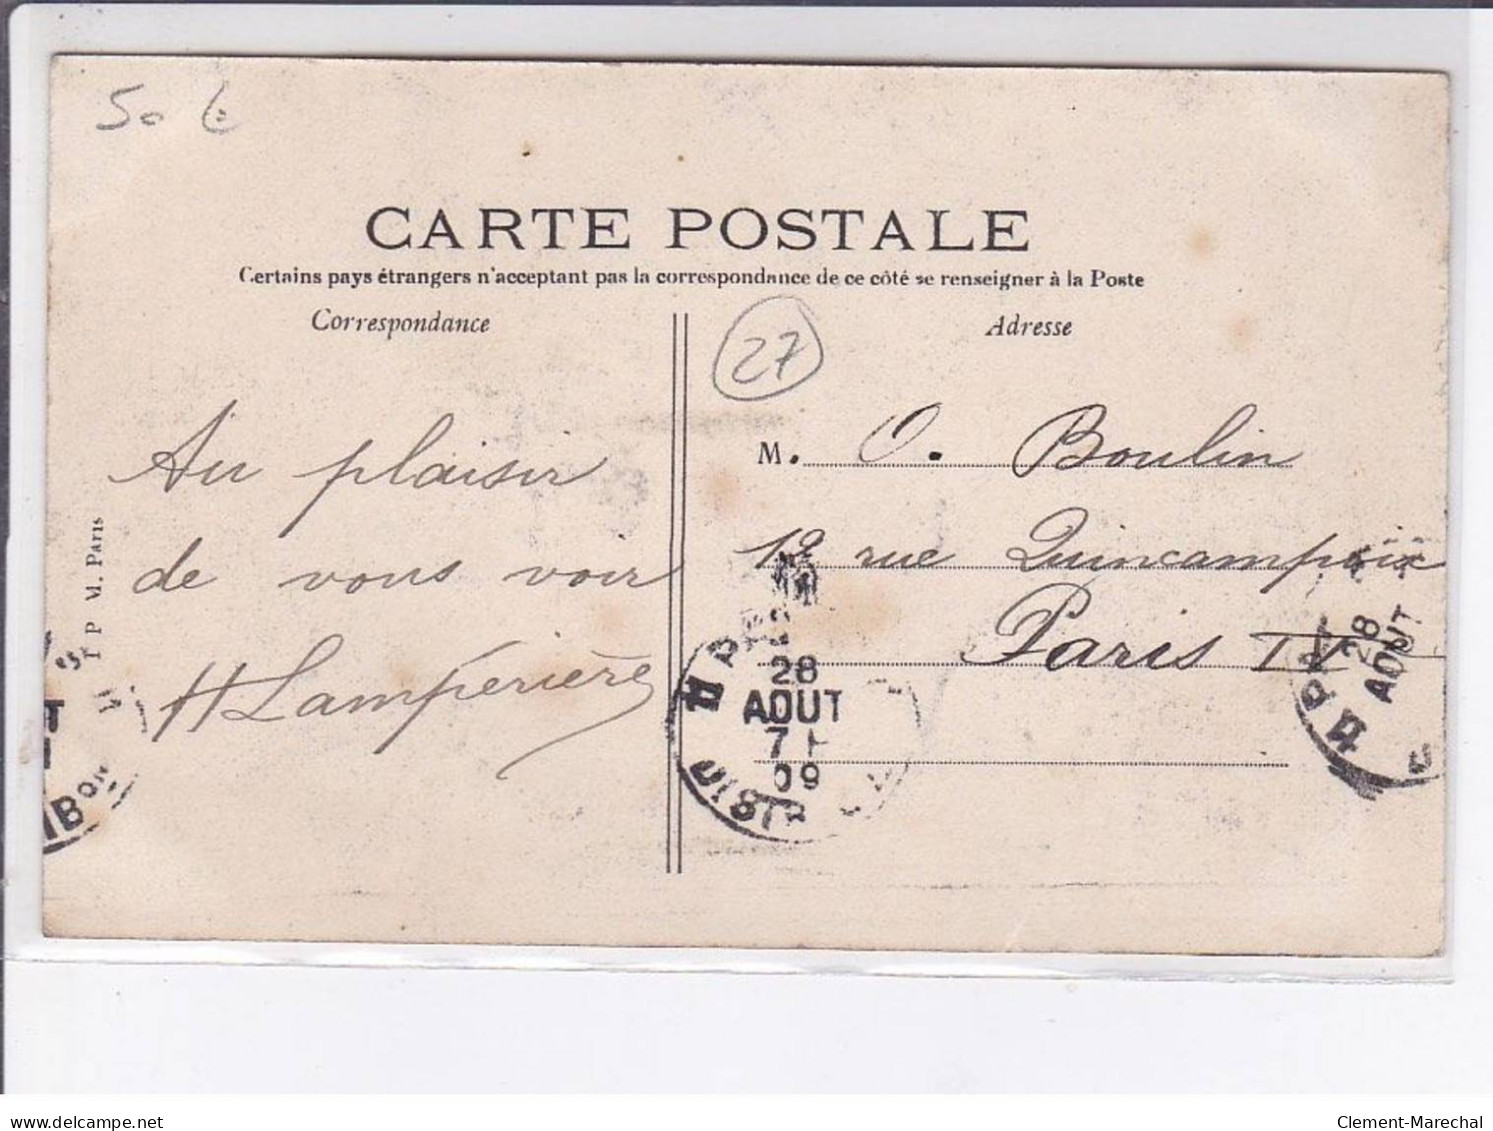 50 €
CARTE POSTALE
Certains pays étrangers n'acceptant pas la correspondance de ce côté se renseigner à la Poste
Correspondance
Adresse
27
Au plaisir
de vous voir
H Lampérière
M. O. Boulin
12 rue Quincampoix
Paris IV
P P M. Paris
28
AOUT
7
09
DISTRIB
28
AOUT
IBON
delcampe.net
Clement-Marechal